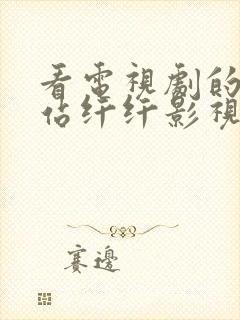 看電視劇的
佔纤纤影視
賽邊